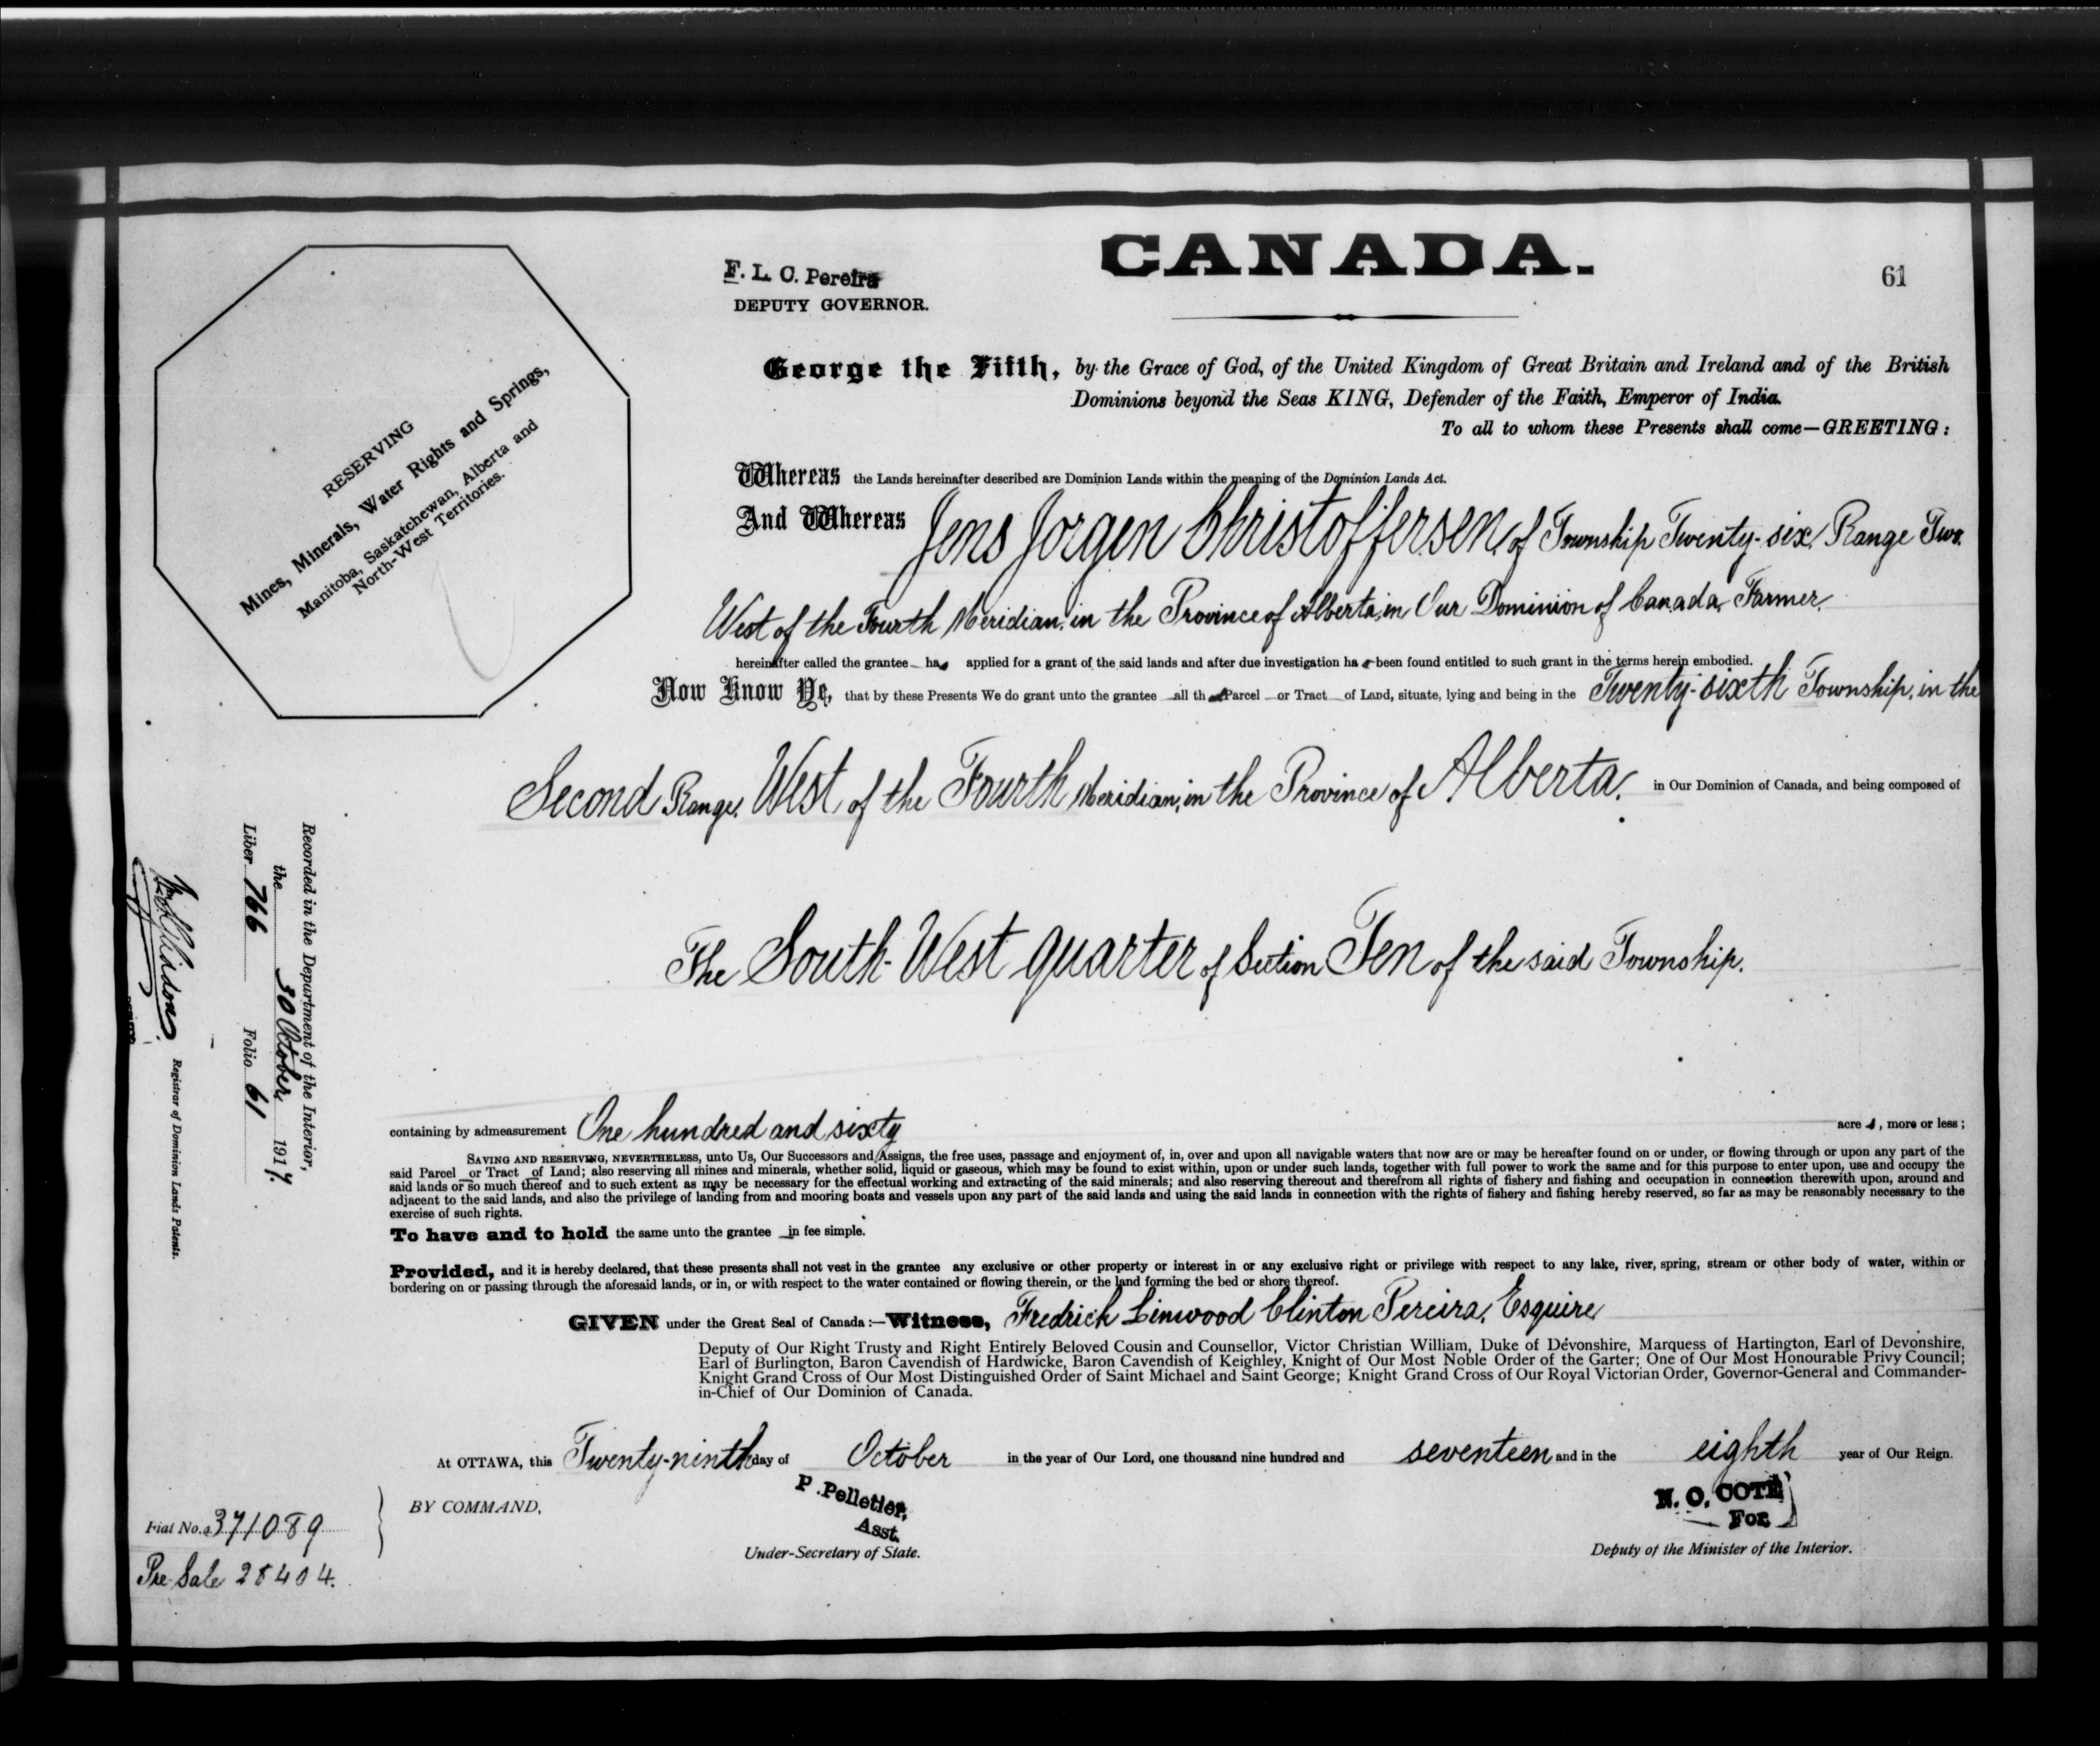 CANADA.
61
F. L. C. Pereira
DEPUTY GOVERNOR.
George the Fifth, by the Grace of God, of the United Kingdom of Great Britain and Ireland and of the British
Dominions beyond the Seas KING, Defender of the Faith, Emperor of India.
To all to whom these Presents shall come—GREETING:
RESERVING
Mines, Minerals, Water Rights and Springs,
Manitoba, Saskatchewan, Alberta and
North-West Territories.
Whereas the Lands hereinafter described are Dominion Lands within the meaning of the Dominion Lands Act.
And Whereas Jens Jorgen Christoffersen, of Township Twenty-six, Range Two.
West of the Fourth Meridian, in the Province of Alberta, in Our Dominion of Canada, Farmer,
hereinafter called the grantee has applied for a grant of the said lands and after due investigation ha s been found entitled to such grant in the terms herein embodied.
Now Know Ye, that by these Presents We do grant unto the grantee all th at Parcel or Tract of Land, situate, lying and being in the Twenty-sixth Township, in the
Second Range, West of the Fourth Meridian, in the Province of Alberta, in Our Dominion of Canada, and being composed of
The South-West quarter of Section Ten of the said Township.
containing by admeasurement One hundred and sixty acre s, more or less;
SAVING AND RESERVING, NEVERTHELESS, unto Us, Our Successors and Assigns, the free uses, passage and enjoyment of, in, over and upon all navigable waters that now are or may be hereafter found on or under, or flowing through or upon any part of the
said Parcel or Tract of Land; also reserving all mines and minerals, whether solid, liquid or gaseous, which may be found to exist within, upon or under such lands, together with full power to work the same and for this purpose to enter upon, use and occupy the
said lands or so much thereof and to such extent as may be necessary for the effectual working and extracting of the said minerals; and also reserving thereout and therefrom all rights of fishery and fishing and occupation in connection therewith upon, around and
adjacent to the said lands, and also the privilege of landing from and mooring boats and vessels upon any part of the said lands and using the said lands in connection with the rights of fishery and fishing hereby reserved, so far as may be reasonably necessary to the
exercise of such rights.
To have and to hold the same unto the grantee in fee simple.
Provided, and it is hereby declared, that these presents shall not vest in the grantee any exclusive or other property or interest in or any exclusive right or privilege with respect to any lake, river, spring, stream or other body of water, within or
bordering on or passing through the aforesaid lands, or in, or with respect to the water contained or flowing therein, or the land forming the bed or shore thereof.
GIVEN under the Great Seal of Canada:—Witness, Fredrick Linwood Clinton Pereira, Esquire,
Deputy of Our Right Trusty and Right Entirely Beloved Cousin and Counsellor, Victor Christian William, Duke of Devonshire, Marquess of Hartington, Earl of Devonshire,
Earl of Burlington, Baron Cavendish of Hardwicke, Baron Cavendish of Keighley, Knight of Our Most Noble Order of the Garter; One of Our Most Honourable Privy Council;
Knight Grand Cross of Our Most Distinguished Order of Saint Michael and Saint George; Knight Grand Cross of Our Royal Victorian Order, Governor-General and Commander-
in-Chief of Our Dominion of Canada.
At OTTAWA, this Twenty-ninth day of October in the year of Our Lord, one thousand nine hundred and seventeen and in the eighth year of Our Reign.
BY COMMAND,
P. Pelletier,
Asst.
Under-Secretary of State.
N. O. COTÉ
For
Deputy of the Minister of the Interior.
Fiat No. 371089
Pre-Sale 28404.
Recorded in the Department of the Interior,
the 30 October, 1917.
Liber 766 Folio 61
Registrar of Dominion Lands Patents.